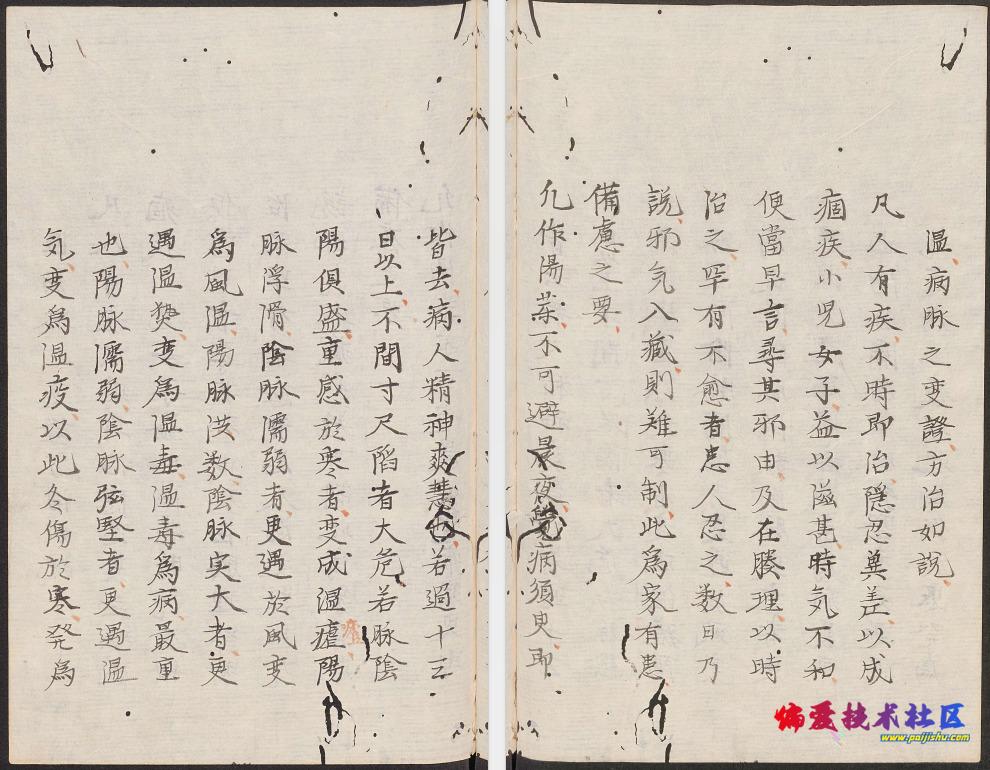 温病脉之变證方治如說
凡人有疾不時即治隱忍兾差以成
痼疾小児女子益以滋甚時気不和
便當早言尋其邪由及在腠理以時
治之罕有不愈者患人忍之数日乃
說邪气入藏則難可制此為家有患
備慮之要
凢作湯藥不可避晨夜覺病須臾即
皆去病人精神爽慧也若過十三
日以上不間寸尺陷者大危若脉陰
陽俱盛重感於寒者变成温瘧陽
瘧
脉浮滑陰脉濡弱者更遇於風变
為風温陽脉洪数陰脉実大者更
遇温熱变為温毒温毒為病最重
也陽脉濡弱陰脉弦堅者更遇温
気变為温疫以此冬傷於寒発為
偏爱技术社区
www.paijishu.com